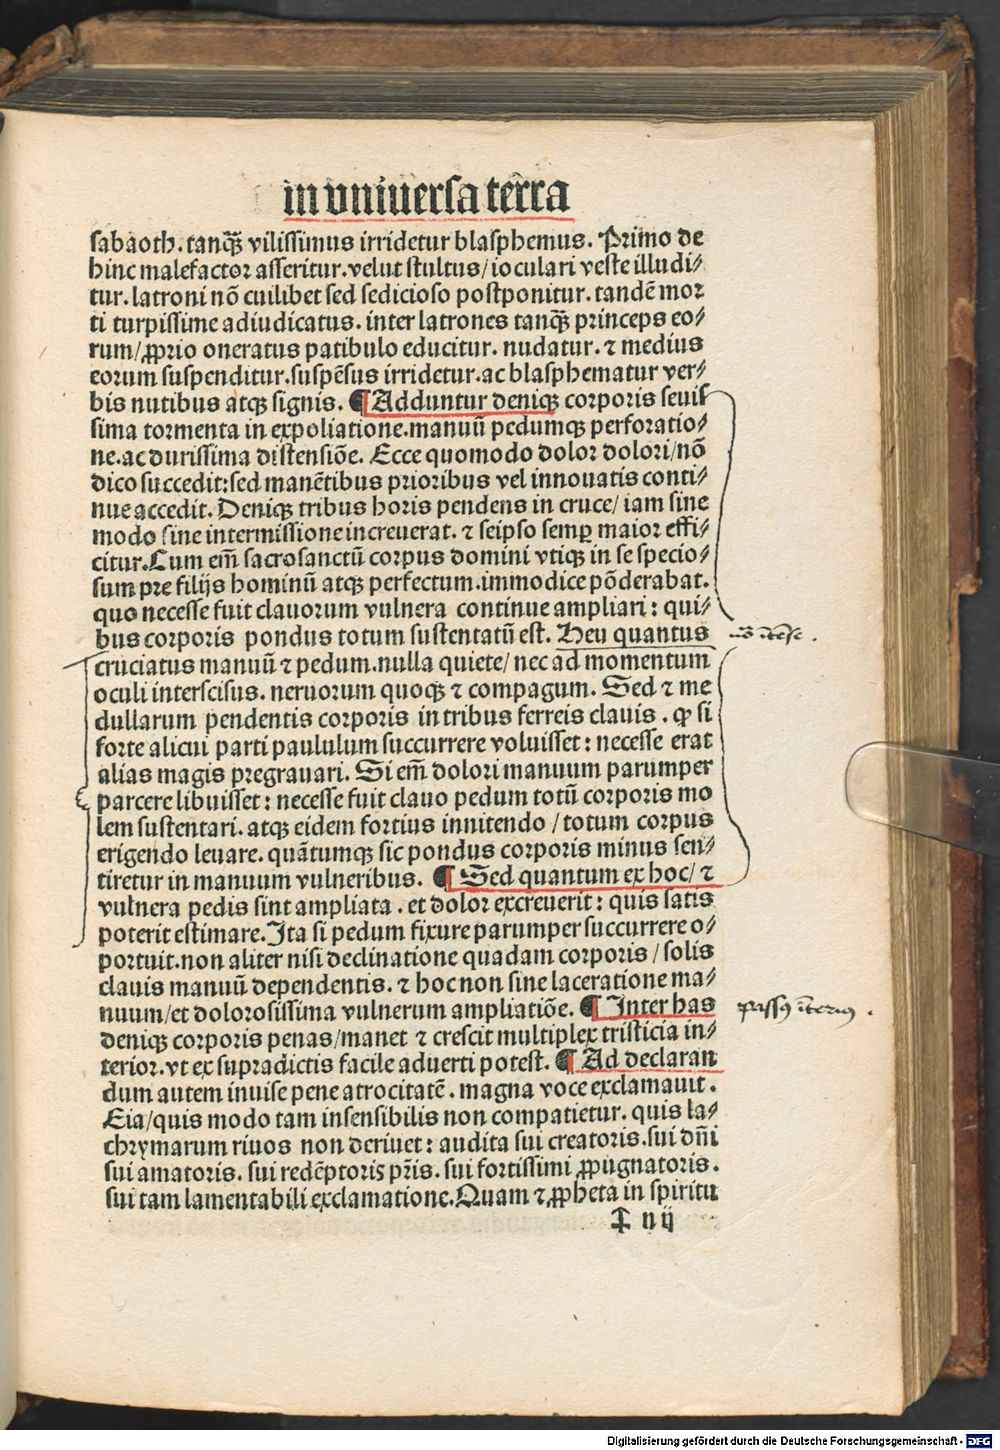 in vniuersa terra
sabaoth. tanqȝ̃ vilissimus irridetur blasphemus. Primo de
hinc malefactor asseritur. velut stultus/ ioculari veste illudi⸗
tur. latroni nõ cuilibet sed sedicioso postponitur. tandẽ mor
ti turpissime adiudicatus. inter latrones tanqȝ̃ princeps eo⸗
rum/ ꝓprio oneratus patibulo educitur. nudatur. ⁊ medius
eorum suspenditur. suspẽsus irridetur. ac blasphematur ver⸗
bis nutibus atqȝ signis. ¶ Adduntur deniqȝ corporis seuis
sima tormenta in expoliatione. manuũ pedumqȝ perforatio⸗
ne. ac durissima distensiõe. Ecce quomodo dolor dolori/ nõ
dico succedit: sed manẽtibus prioribus vel innouatis conti⸗
nue accedit. Deniqȝ tribus horis pendens in cruce/ iam sine
modo sine intermissione increuerat. ⁊ seipso semꝑ maior effi⸗
citur. Cum em̃ sacrosanctũ corpus domini vtiqȝ in se specio⸗
sum pre filijs hominũ atqȝ perfectum. immodice põderabat.
quo necesse fuit clauorum vulnera continue ampliari: qui⸗
bus corporis pondus totum sustentatũ est. Heu quantus
cruciatus manuũ ⁊ pedum. nulla quiete/ nec ad momentum
oculi interscisus. neruorum quoqȝ ⁊ compagum. Sed ⁊ me
dullarum pendentis corporis in tribus ferreis clauis. ꝙ si
forte alicui parti paululum succurrere voluisset: necesse erat
alias magis pregrauari. Si em̃ dolori manuum parumper
parcere libuisset: necesse fuit clauo pedum totũ corporis mo
lem sustentari. atqȝ eidem fortius innitendo/ totum corpus
erigendo leuare. quãtumqȝ sic pondus corporis minus sen⸗
tiretur in manuum vulneribus. ¶ Sed quantum ex hoc/ ⁊
vulnera pedis sint ampliata. et dolor excreuerit: quis satis
poterit estimare. Ita si pedum fixure parumper succurrere o⸗
portuit. non aliter nisi declinatione quadam corporis/ solis
clauis manuũ dependentis. ⁊ hoc non sine laceratione ma⸗
nuum/ et dolorosissima vulnerum ampliatiõe. ¶ Inter has
passꝰ ĩteriꝰ.
deniqȝ corporis penas/ manet ⁊ crescit multiplex tristicia in⸗
terior. vt ex supradictis facile aduerti potest. ¶ Ad declaran
dum autem inuise pene atrocitatẽ. magna voce exclamauit.
Eia/ quis modo tam insensibilis non compatietur. quis la⸗
chrymarum riuos non deriuet: audita sui creatoris. sui dñi
sui amatoris. sui redẽptoris pr̃is. sui fortissimi ꝓpugnatoris.
sui tam lamentabili exclamatione. Quam ⁊ ꝓpheta in spiritu
nij
Digitalisierung gefördert durch die Deutsche Forschungsgemeinschaft - DFG